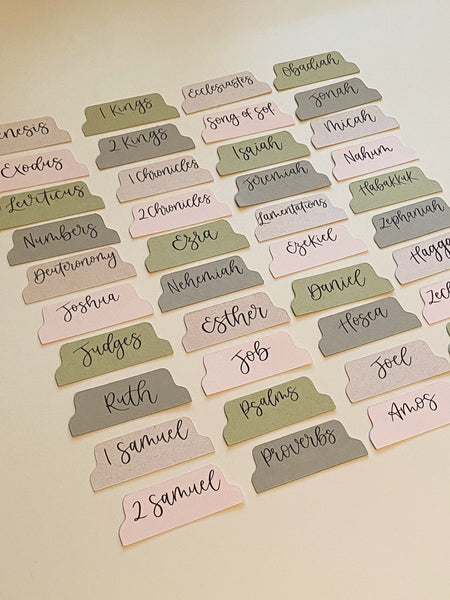 enesis
Exodus
Leviticus
Numbers
Deuteronomy
Joshua
Judges
Ruth
1 Samuel
2 Samuel
1 Kings
2 Kings
1 Chronicles
2 Chronicles
Ezra
Nehemiah
Esther
Job
Psalms
Proverbs
Ecclesiastes
Song of Sol
Isaiah
Jeremiah
Lamentations
Ezekiel
Daniel
Hosea
Joel
Amos
Obadiah
Jonah
Micah
Nahum
Habakkuk
Zephaniah
Hagga
Zec